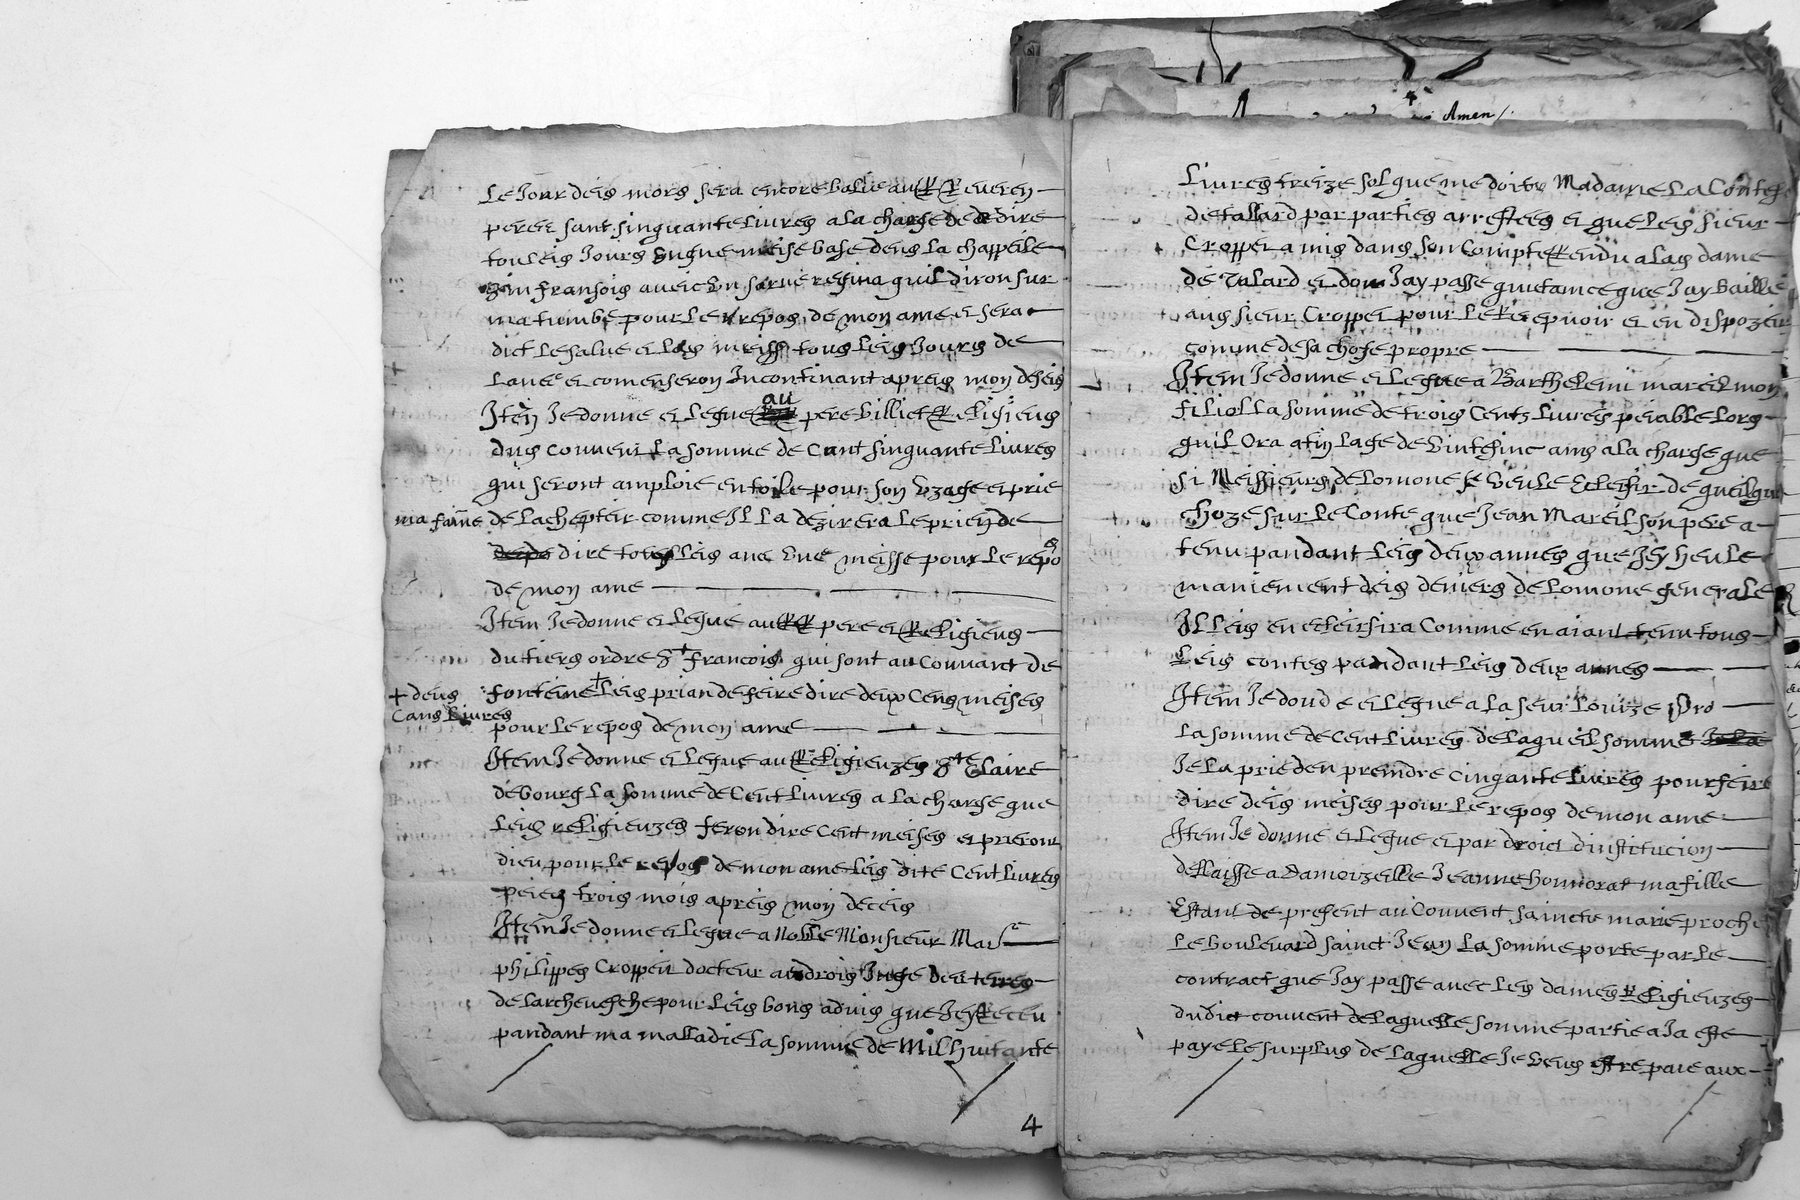 Le Jour deis mors sera encore balie au RR everen
peree sant singuante Livres a la charge de dire
touleis Jours ungne meise base deus la chappeile
sain fransois aveic un sarve regina quil diron sur
ma tumbe pour le repos de mon ame et sera
dict le salue et lais meiss tous leis Jours de
et comenseron Incontinant apreis mon deseis
Iten Je donne et legue au pere billiet Religieus
dus couvent la somme de Cant singuante livres
qui seront amploie en toile pour son Uzage et prie
ma fame de lachepteir comme Il la dezirera le prien de
dire tous leis une meisse pour le repos
de mon ame
Item Je donne et legue au RR pere et Religieus
du tiers ordre St francois qui sont au Couvant de
+ deus
Cans Livres
fonteine + leis prian de feire dire deux Cens meises
pour le repos de mon ame
Item Je donne et legue au Religieuzes Ste Claire
de bourg la somme de Cent Livres a la charge que
leis religieuzes feron dire Cent meises et prieront
dieu pour le repos de mon ame leis dite Cent livres
peies trois mois apreis mon deceis
Item Je donne et legue a Noble Monsieur Mais
philippes Croppeit docteur audrois Juge deu terres
de larchevesche pour leis bons advis que Jey Receu
pandant ma malladie la somme de Mil huitante
4
Amen
Livres treize sol que me doive Madame La Contesse
de tallard par parties arrestees et que leis sieur
Croppet a mis dans son Compte Rendu a las dame
de Talard et don Jay passe quitance que Jay baille
aus sieur Croppet pour le Resepvoir et en dispozeir
comme de sa chose propre
Item Je donne et legue a Barthelemi mareil mon
filiol la somme de trois Cents livres peiable lors
quil Ora atin lage de Vintesinc ans a la charge que
si Meissieurs de lomone se veule Ecleisir de queilque
choze sur le Conte que Jean Mareil son pere a
tenu pandant leis deux annes que Jey heu le
maniement deis deniers de lomone generale
Il leis en ecleirsira Comme en aiant tenu tous
leis contes pandant leis deux annes
Item Je doud e et legue a la seur Louize Pro
La somme de Cent livres de laqueil somme
Je la prie den preindre cinqante livres pour feire
dire deis meises pour le repos de mon ame
Item Je donne et legue et par droict dinstitucion
dellaisse a Damoizeille Jeanne honnorat ma fille
Estant de present au Couvent saincte marie proche
le boulevard sainct Jean la somme porte par le
contract que Jay passe avec leis dames Religieuzes
dudict couvent de laquelle somme partie a Ja este
paye le surplus de laquelle Je veus estre paie aux